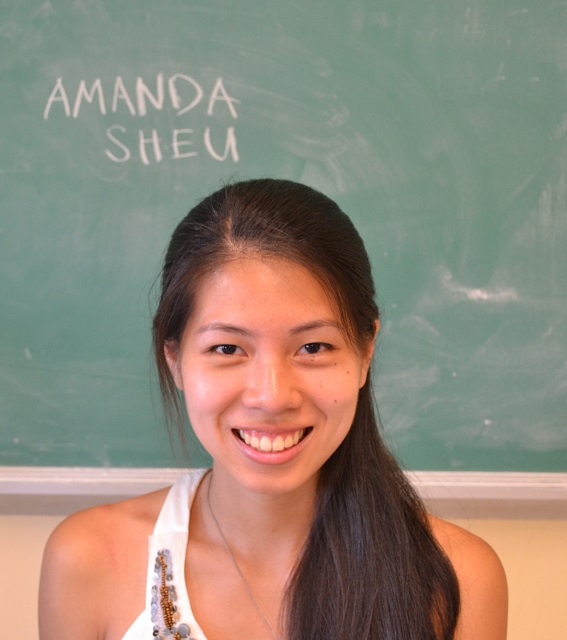 AMANDA
SHEU